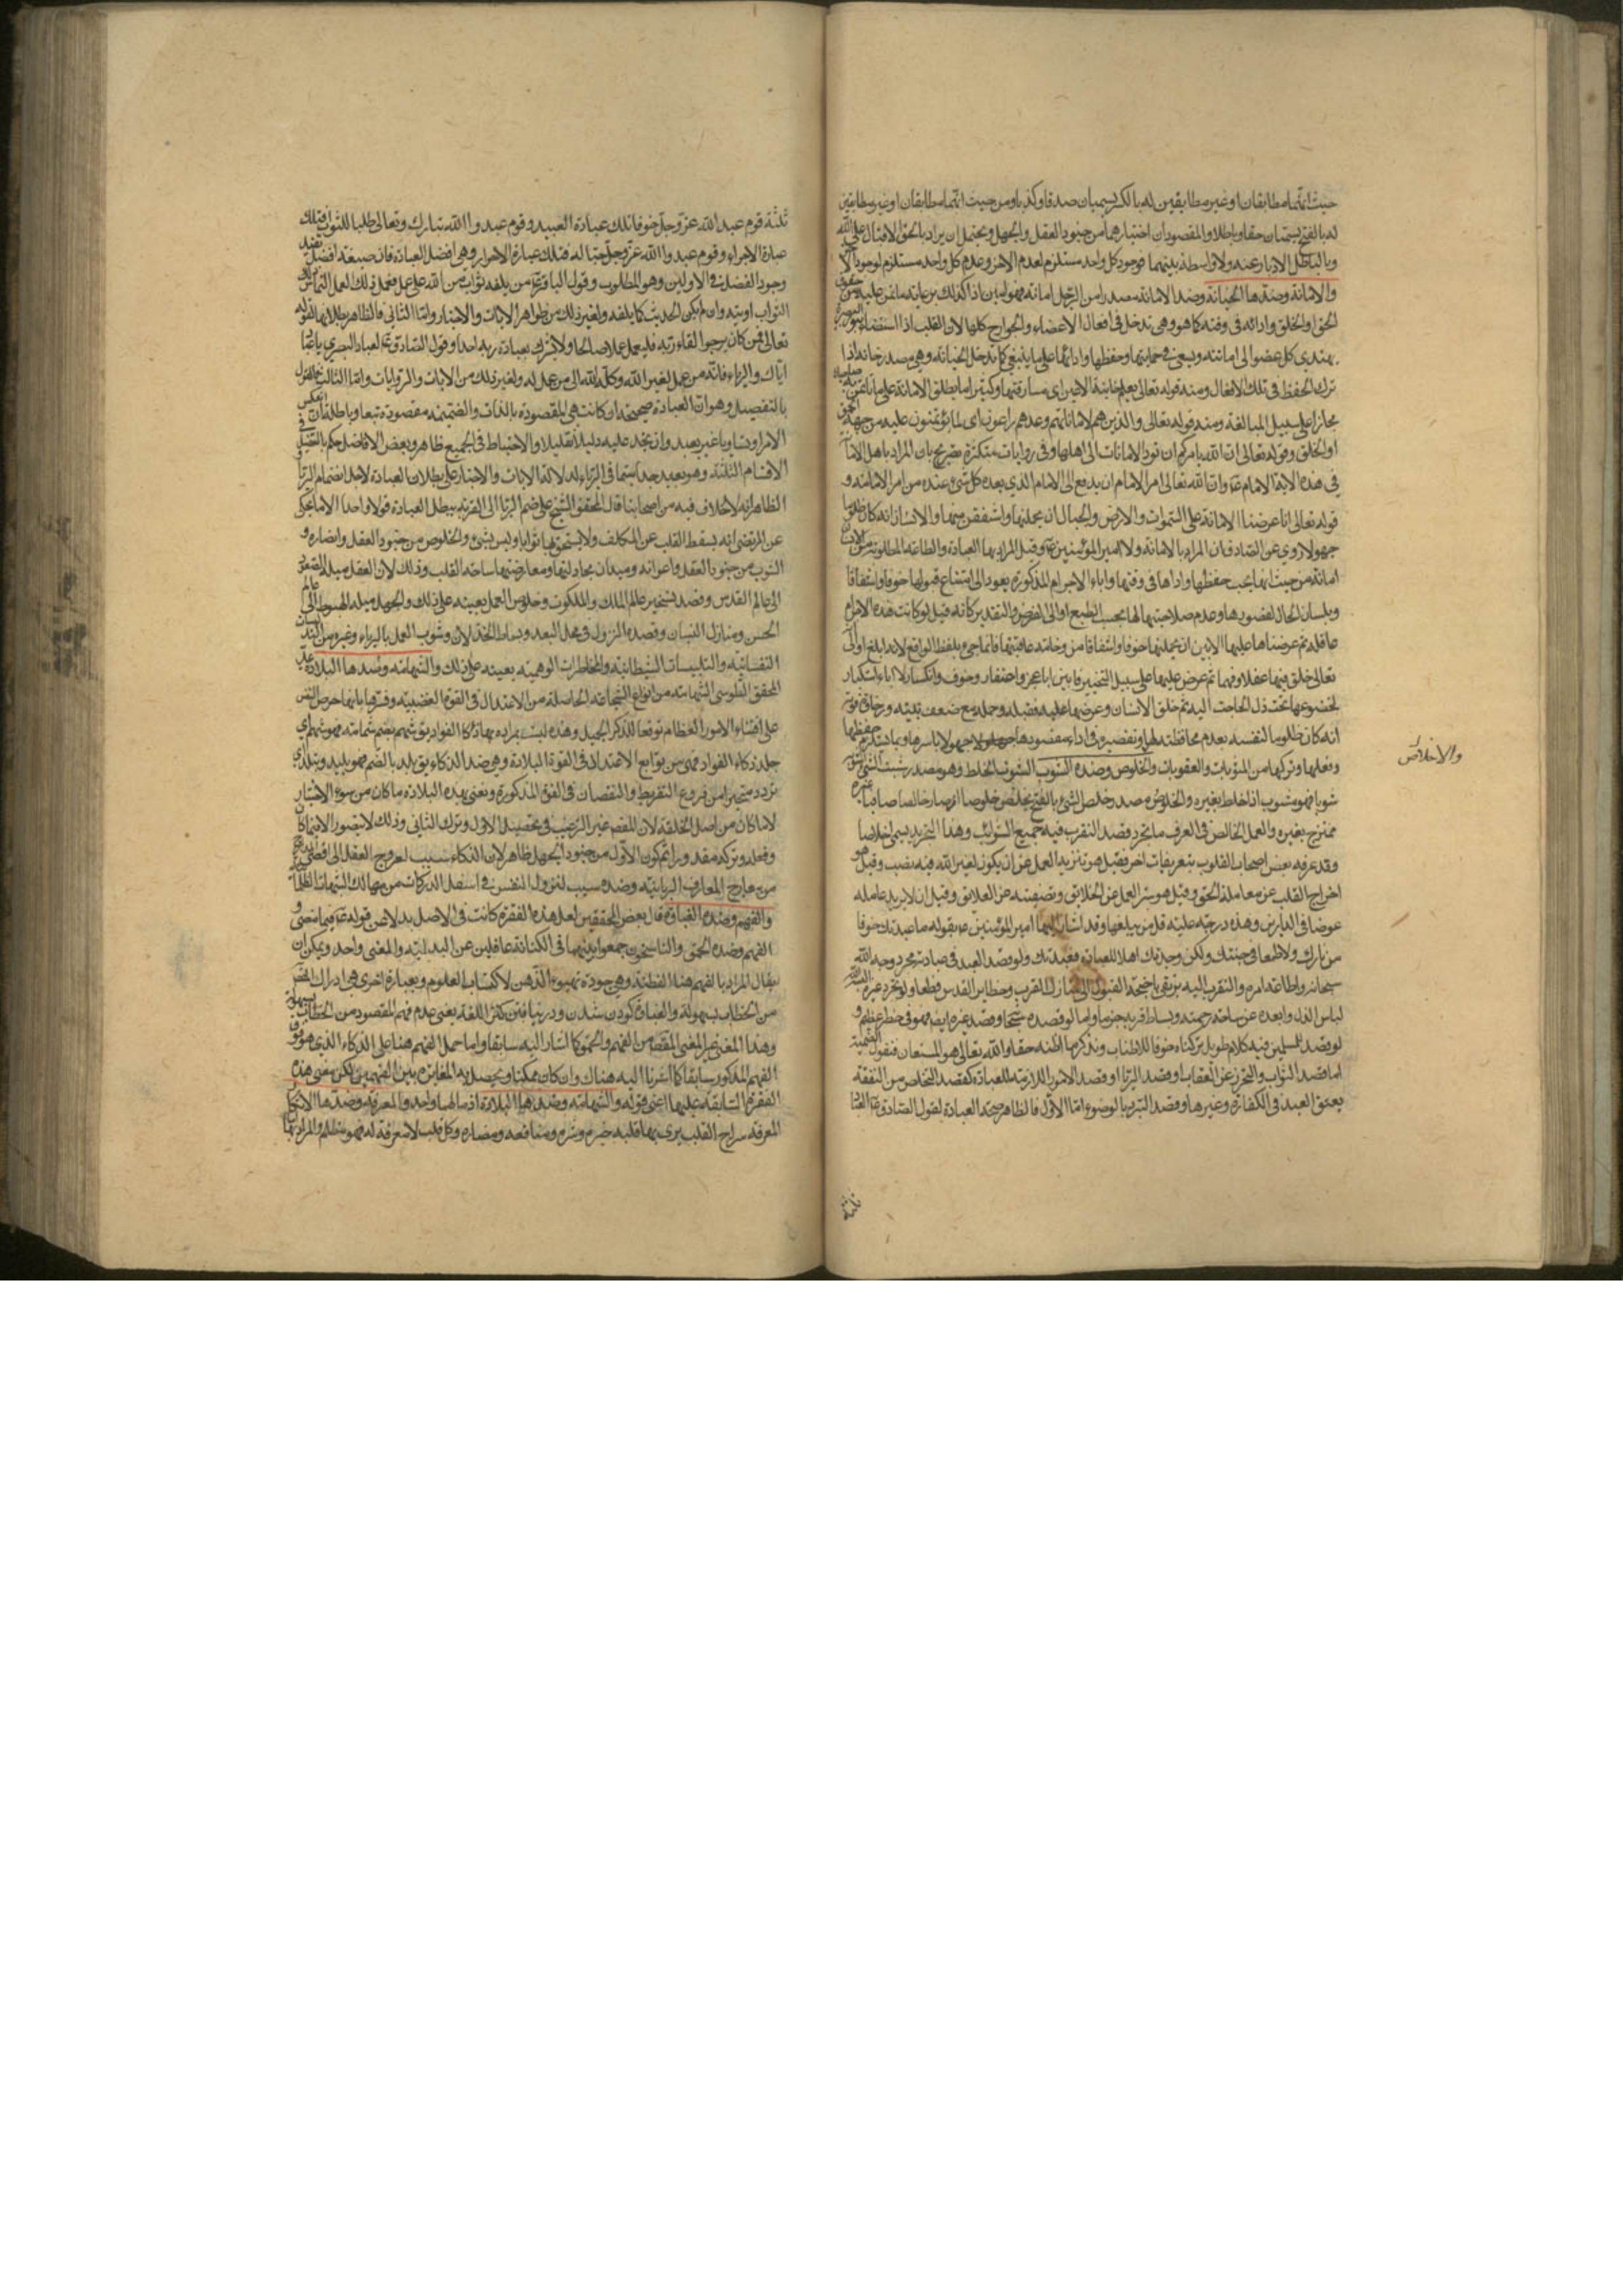 حيث انهما مطابقان او غير مطابقين له بالكسر يسميان صدقا وكذبا ومن حيث انهما مطابقان او غير مطابقين
له بالفتح يسميان حقا وباطلا والمقصود ان اختيارهما من جنود العقل والجهل ويحتمل ان يراد بالحق الاقبال على الله
وبالباطل الادبار عنه ولا واسطة بينهما فوجود كل واحد مستلزم لعدم الاخر وعدم كل واحد مستلزم لوجود الاخر
والامانة وضدها الخيانة وضد الامانة مصدر امن الرجل امانة فهو امين اذا كان كذلك
الحق او الخلق وادائه في وقته كما هو وهي تدخل في افعال الاعضاء والجوارح كلها لان القلب اذا استضاء
يهتدي كل عضو الى امانته ويسعى في حمايتها وحفظها وادائها على ما ينبغي كما تدخل الخيانة وهي مصدر خانه اذا
ترك الحفظ في تلك الافعال ومنه قوله تعالى يعلم خائنة الاعين اي مسارقتها وكثيرا ما يطلق الامانة على
مجازا على سبيل المبالغة ومنه قوله تعالى والذين هم لاماناتهم وعهدهم راعون اي لما يؤتمنون عليه من جهة الحق
او الخلق وقوله تعالى ان الله يامركم ان تؤدوا الامانات الى اهلها وفي روايات متكثرة تصريح بان المراد باهل الامانة
في هذه الاية الامام ع وان الله تعالى امر الامام ان يدفع الى الامام الذي بعده كل شيء عنده من امر الامامة و
قوله تعالى انا عرضنا الامانة على السموات والارض والجبال ان يحملنها واشفقن منها والانسان انه كان ظلوما
جهولا روي عن الصادق ان المراد بالامانة ولاية امير المؤمنين ع وقيل المراد بها العبادة والطاعة المطلوبة من الانسان
امانة من حيث انها يجب حفظها واداها في وقتها واباء الاجرام المذكورة يعود الى امتناع قبولها خوفا واشفاقا
وبلسان الحال لقصورها وعدم صلاحيتها لها بحسب الطبع او الى الفرض والتقدير كانه قيل لو كانت هذه الاجرام
عاقلة ثم عرضناها عليها لابين ان يحملنها خوفا واشفاقا من وخامة عاقبتها فانما جيء بلفظ الواقع لانه ابلغ او الى
تعالى خلق فيها عقلا وفهما ثم عرض عليها على سبيل التخيير فابين اباء عجز واحتقار وخوف وانكسار لا اباء استكبار
لخضوعها تحت ذل الحاجة اليه ثم خلق الانسان وعرضها عليه فقبله وحمله مع ضعف بنيته ورخاوة قوته
انه كان ظلوما لنفسه بعدم محافظته لها وتقصيره في اداء مقصودها جهولا باسرها وبما يستلزم حفظها
وفعلها وتركها من المثوبات والعقوبات والخلوص وضده الشوب الشوب الخلط وهو مصدر شبت الشيء اشوبه
شوبا فهو مشوب اذا خلط بغيره والخلوص مصدر خلص الشيء بالفتح يخلص خلوصا اذ صار خالصا صافيا غير
ممتزج بغيره والعمل الخالص في العرف ما تجرد قصد التقرب فيه جميع الشوائب وهذا التجريد يسمى اخلاصا
وقد عرفه بعض اصحاب القلوب بتعريفات اخر فقيل هو تنزيه العمل عن ان يكون لغير الله فيه نصيب وقيل هو
اخراج القلب عن معاملة الحق وقيل هو ستر العمل عن الخلائق وتصفيته عن العلائق وقيل ان لا يريد عامله
عوضا في الدارين وهذه درجة علية قل من يبلغها وقد اشار اليها امير المؤمنين ع بقوله ما عبدتك خوفا
من نارك ولا طمعا في جنتك ولكن وجدتك اهلا للعبادة فعبدتك ولو قصد العبد في عبادته مجرد وجه الله
سبحانه واطاعة امره والتقرب اليه يرتقي باجنحة القبول الى منازل القرب وحظاير القدس قطعا ولو تجرد غيره
لباس الذل وابعده عن ساحة رحمته وبساط قربه جزما واما لو قصده سبحانه وقصد غيره ايضا فهو في خطر عظيم و
لو قصد للمسلمين فيه كلام طويل تركناه خوفا للاطناب ونذكر ما اظنه حقا والله تعالى هو المستعان فنقول
اما قصد الثواب والتحرز عن العقاب او قصد الريا او قصد الامور اللازمة للعبادة كقصد التخلص من النفقة
بعتق العبد في الكفارة وغيرها وقصد التبرد بالوضوء اما الاول فالظاهر صحة العبادة لقول الصادق ع العباد
والاخلاص
ثلثة قوم عبدوا الله عز وجل خوفا فتلك عبادة العبيد وقوم عبدوا الله تبارك وتعالى طلبا للثواب فتلك
عبادة الاجراء وقوم عبدوا الله عز وجل حبا له فتلك عبادة الاحرار وهي افضل العبادة فان صيغة افضل تفيد
وجود الفضل في الاولين وهو المطلوب وقول الباقر ع من بلغه ثواب من الله على عمل فعمل ذلك العمل التماس ذلك
الثواب اوتيه وان لم يكن الحديث كما بلغه ولغير ذلك من ظواهر الايات والاخبار واما الثاني فالظاهر بطلانها لقوله
تعالى فمن كان يرجوا لقاء ربه فليعمل عملا صالحا ولا يشرك بعبادة ربه احدا وقول الصادق ع لعباد البصري يا عباد
اياك والرياء فانه من عمل لغير الله وكله الله الى من عمل له ولغير ذلك من الايات والروايات واما الثالث
بالتفصيل وهو ان العبادة صحيحة ان كانت هي المقصودة بالذات والضميمة مقصودة تبعا وباطلة ان انعكس
الامر او تساويا غير بعيد وان لم نجد عليه دليلا نقليلا والاحتياط في الجميع ظاهر وبعض الافاضل حكم بالتفصيل في
الاقسام الثلثة وهو بعيد جدا سيما في الرياء لدلالة الايات والاخبار على بطلان العبادة لاجل انضمام الريا
الظاهر انه لا خلاف فيه من اصحابنا قال المحقق الشيخ علي ضم الريا الى القربة يبطل العبادة قولا واحدا الا ما يحكى
عن المرتضى انه يسقط الطلب عن المكلف ولا يستحق بها ثوابا وليس بشيء والخلوص من جنود العقل وانصاره و
الشوب من جنود العقل واعوانه وميدان مجادلتها ومعارضتها ساحة القلب وذلك لان العقل ميله الصعود
الى عالم القدس وقصده تسخير عالم الملك والملكوت وخلوص العمل يعينه على ذلك والجهل ميله الهبوط الى عالم
الحس ومنازل النسيان وقصده النزول في محل البعد وبساط الخذلان وشوب العمل بالرياء وغيره من
النفسانية والتلبيسات الشيطانية والمخاطرات الوهمية يعينه على ذلك والشهامة وضدها البلادة عد
المحقق الطوسي الشهامة من انواع الشجاعة الحاصلة من الاعتدال في القوة الغضبية وفسرها بانها حرص النفس
على اقتناء الامور العظام توقعا للذكر الجميل وهذه ليست بمرادة بها ذكاء الفواد يق شهم بضم شهامة فهو شهم اي
جلد ذكاء الفواد فهي من توابع الاعتدال في القوة البلادة وهي ضد الذكاء يق بلد بالضم فهو بليد وتبلد اي
تردد متحيرا من فروع التفريط والنقصان في القوة المذكورة ونعني بهذه البلادة ما كان من سوء الاختيار
لا ما كان من اصل الخلقة لان المقصد غير الترغيب في تحصيل الاول وترك الثاني وذلك لا يتصور الا فيما كان
وفعله وتركه مقدورا ثم كون الاول من جنود الجهل ظاهر لان الذكاء سبب لعروج العقل الى اقصى المدارج
من معارج المعارف الربانية وضده سبب لنزول النفس في اسفل الدركات من مهالك الشبهات الظلمانية
والفهم وضده الغباوة قال بعض المحققين لعل هذه الفقرة كانت في الاصل بدلا عن قوله ع فيما مضى و
الفهم وضده الحمق والناسخون جمعوا بينهما في الكتابة غافلين عن البدلية والمعنى واحد ويمكن ان
يقال المراد بالفهم هنا الفطنة وهي جودة تهيوء الذهن لاكتساب العلوم وبعبارة اخرى هي ادراك المقصود
من الخطاب بسهولة والغباوة كودن شدن ودر نيافتن كنز اللغة يعني عدم فهم المقصود من الخطاب بسهولة
وهذا المعنى غير المعنى المقصد من الفهم والحمق كما اشار اليه سابقا واما حمل الفهم هنا على الذكاء الذي هو فوق
الفهم المذكور سابقا كما اشرنا اليه هناك وان كان ممكنا ويحصل به المغايرة بين الفهمين لكن معنى هذه
الفقرة السابقة عليها اعني قوله والشهامة وضدها البلادة اذ مالهما واحد والمعرفة وضدها الانكار
المعرفة سراج القلب يرى بها قلبه خيره وشره ومنافعه ومضاره وكل قلب لا معرفة له فهو مظلم والمراد بها